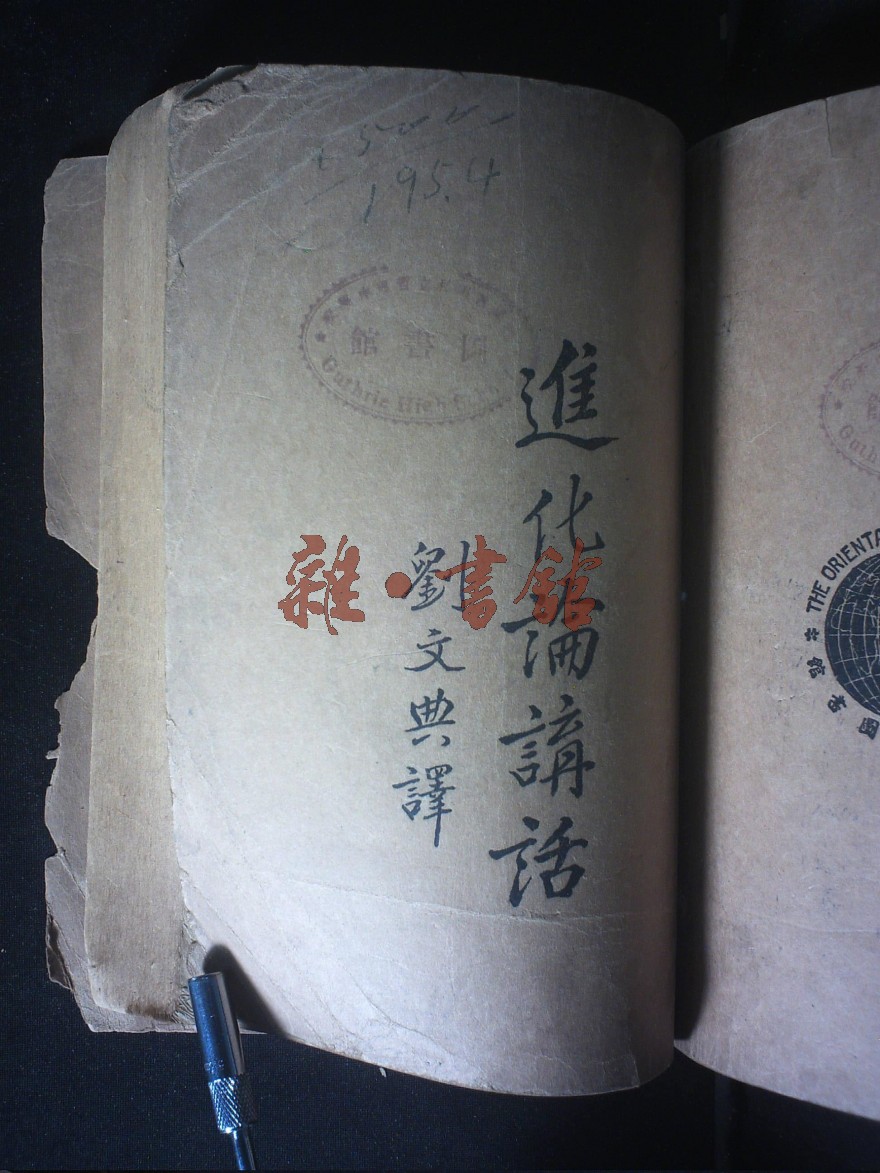 195.4
圖書館
Guthrie High
進化論講話
劉文典譯
雜·書館
THE ORIENTA
Guth